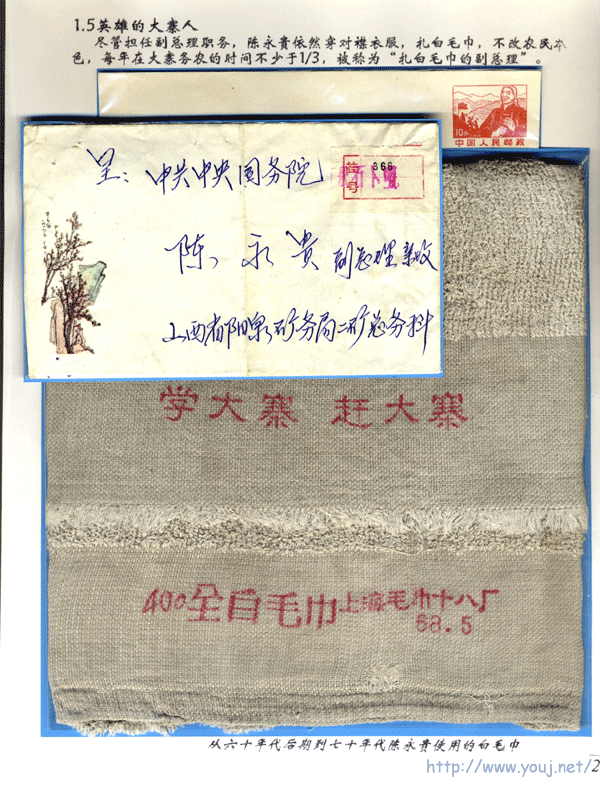 1.5英雄的大寨人
尽管担任副总理职务，陈永贵依然穿对襟衣服，扎白毛巾，不改农民本
色，每年在大寨务农的时间不少于1/3，被称为“扎白毛巾的副总理”。
10分
中国人民邮政
呈：中共中央国务院
366
号
陈永贵副总理亲收
山西省阳泉矿务局二矿总务科
学大寨 赶大寨
400全白毛巾上海毛巾十八厂
68.5
从六十年代后期到七十年代陈永贵使用的白毛巾
http://www.youj.net/2